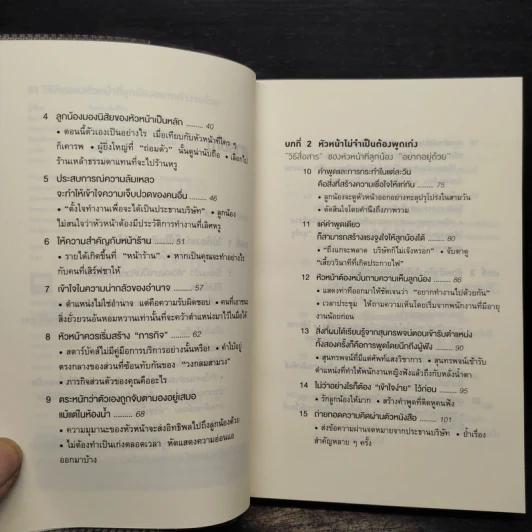 4 ลูกน้องมองนิสัยของหัวหน้าเป็นหลัก ......... 40
• ตอนนี้ตัวเองเป็นอย่างไร เมื่อเทียบกับหัวหน้าที่ใคร ๆ
ก็เคารพ • ผู้ยิ่งใหญ่ที่ "ถ่อมตัว" นั้นดูน่านับถือ • เลือกไป
ร้านเหล้าธรรมดาแทนที่จะไปร้านหรู
5 ประสบการณ์ความล้มเหลว
จะทำให้เข้าใจความเจ็บปวดของคนอื่น ......... 46
• "ตั้งใจทำงานเพื่อจะได้เป็นประธานบริษัท" • ลูกน้อง
ไม่สนใจว่าหัวหน้าต้องมีประวัติการทำงานที่เลิศหรู
6 ให้ความสำคัญกับหน้าร้าน ......... 51
• รายได้เกิดขึ้นที่ "หน้าร้าน" • หากเป็นคุณจะทำอย่างไร
กับคนที่เสิร์ฟชาให้
7 เข้าใจในความน่ากลัวของอำนาจ ......... 57
• ตำแหน่งไม่ใช่อำนาจ แต่คือความรับผิดชอบ • คนที่เอาชนะ
สิ่งยั่วยวนอันหอมหวานเท่านั้นที่จะคว้าตำแหน่งมาไว้ในมือได้
8 หัวหน้าควรเริ่มสร้าง "ภารกิจ" ......... 62
• สตาร์บัคส์ไม่มีคู่มือการบริการอย่างนั้นหรือ! • จำไว้อยู่
ตรงกลางของส่วนที่ซ้อนทับกันของ "วงกลมสามวง"
• ภารกิจส่วนตัวของคุณคืออะไร
9 ตระหนักว่าตัวเองถูกจับตามองอยู่เสมอ
แม้แต่ในห้องน้ำ ......... 68
• ความมุมานะของหัวหน้าจะส่งอิทธิพลไปถึงลูกน้องด้วย
• ไม่ต้องทำเป็นเก่งตลอดเวลา หัดแสดงความอ่อนแอ
ออกมาบ้าง
บทที่ 2 หัวหน้าไม่จำเป็นต้องพูดเก่ง
"วิธีสื่อสาร" ของหัวหน้าที่ลูกน้อง "อยากอยู่ด้วย"
10 คำพูดและการกระทำในแต่ละวัน
คือสิ่งที่สร้างความเชื่อใจให้แก่กัน ......... 75
• ลูกน้องจะดูหัวหน้าออกอย่างทะลุปรุโปร่งในสามวัน
• ตัดสินใจโดยคำนึงถึงภาพรวม
11 แค่คำพูดเดียว
ก็สามารถสร้างแรงจูงใจให้ลูกน้องได้ ......... 80
• "ถึงแกจะพลาด บริษัทก็ไม่เจ๊งหรอก" • จับตาดู
"เสี้ยววินาทีที่เกิดประกายไฟ"
12 หัวหน้าต้องหมั่นถามความเห็นลูกน้อง ......... 86
• แสดงท่าทีออกมาให้ชัดเจนว่า "อยากทำงานไปด้วยกัน"
• เวลาประชุม ให้ถามความเห็นโดยเริ่มจากพนักงานที่มีอายุ
งานน้อยก่อน
13 สิ่งที่ผมได้เรียนรู้จากสุนทรพจน์ตอนเข้ารับตำแหน่ง
ทั้งสองครั้งก็คือการพูดโดยนึกถึงผู้ฟัง ......... 90
• สุนทรพจน์ที่มีแต่ศัพท์แสงวิชาการ • สุนทรพจน์เข้ารับ
ตำแหน่งที่ทำให้พนักงานหญิงฟังแล้วถึงกับหลั่งน้ำตา
14 ไม่ว่าอย่างไรก็ต้อง "เข้าใจง่าย" ไว้ก่อน ......... 95
• รักลูกน้องให้มาก • สร้างคำพูดที่ติดหูคนฟัง
15 ถ่ายทอดความคิดผ่านตัวหนังสือ ......... 101
• ส่งข้อความผ่านจดหมายจากประธานบริษัท • ย้ำเรื่อง
สำคัญหลาย ๆ ครั้ง